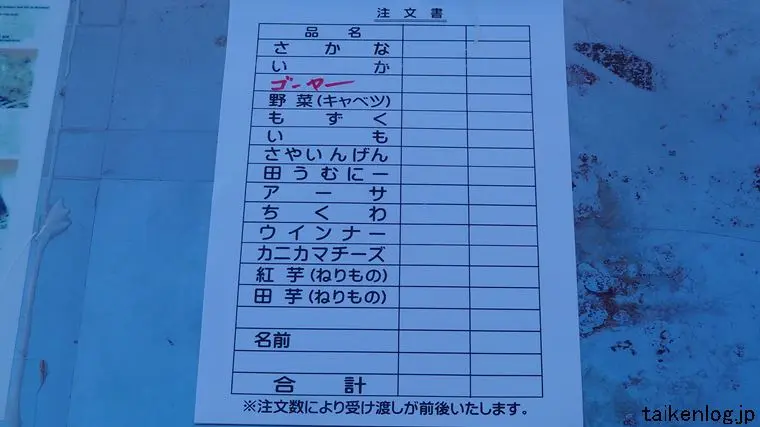 注文書
品名
さかな
いか
ゴーヤー
野菜(キャベツ)
もずく
いも
さやいんげん
田うむにー
アーサ
ちくわ
ウインナー
カニカマチーズ
紅芋(ねりもの)
田芋(ねりもの)
名前
合計
※注文数により受け渡しが前後いたします。
taikenlog.jp